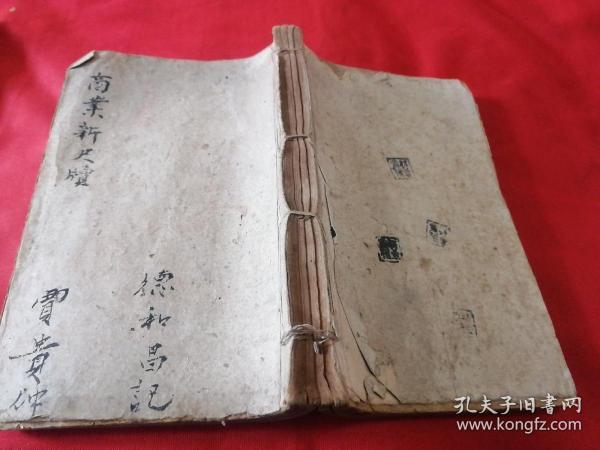 商業新尺牘
德和昌記
賈貴仲
孔夫子旧书网
www.kongfz.com